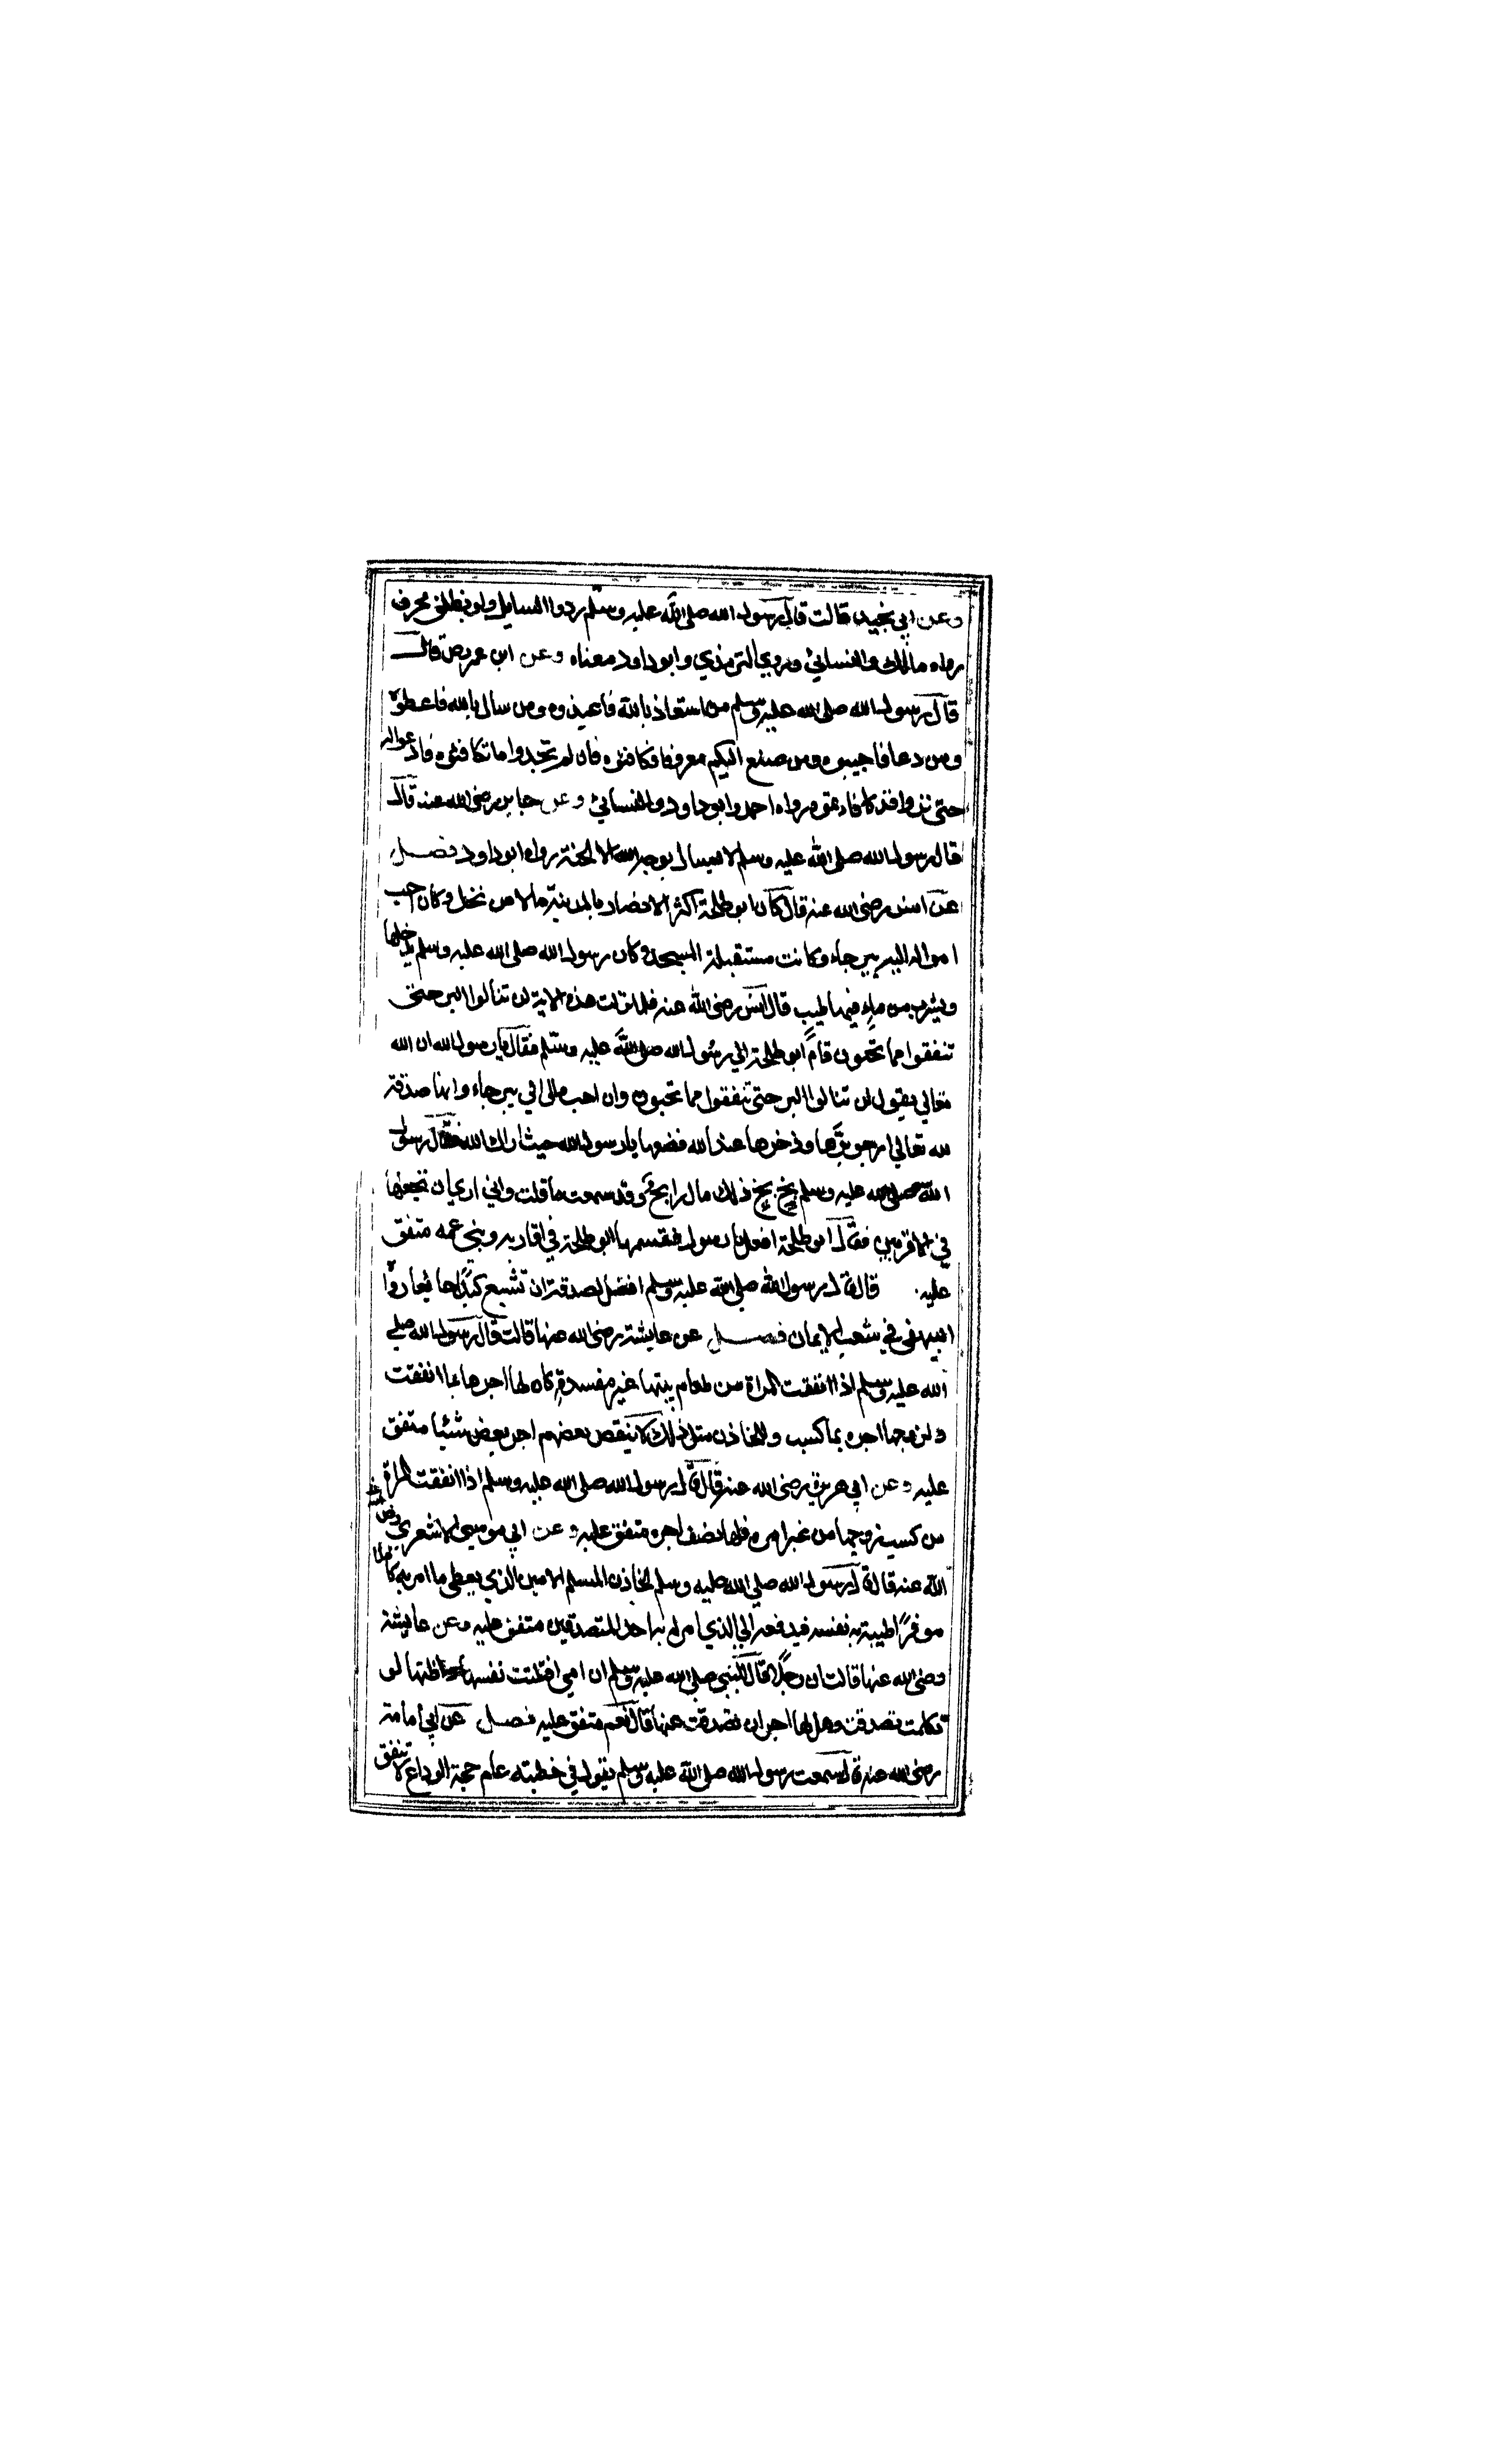 وعن ابي بجيد قالت قال رسول الله صلى الله عليه وسلم ردوا السايل ولو بظلف محرف
رواه مالك والنسائي وروي الترمذي وابوداود معناه وعن ابن عمر رض قال
قال رسول الله صلى الله عليه وسلم من استعاذ بالله فأعيذوه ومن سال بالله فاعطوه
ومن دعا فاجيبوه ومن صنع اليكم معروفا فكافئوه فان لم تجدوا ما تكافئوه فادعوا له
حتى تروا قد كافاتموه رواه احمد وابوداود والنسائي وعن جابر رضى الله عنه قال
قال رسول الله صلى الله عليه وسلم لا يسال بوجه الله الا الجنة رواه ابوداود فصل
عن انس رضى الله عنه قال كان ابوطلحة اكثر الانصار بالمدينة مالا من نخل وكان احب
امواله اليه بيرحاء وكانت مستقبلة المسجد وكان رسول الله صلى الله عليه وسلم يدخلها
ويشرب من ماء فيها طيب قال انس رضى الله عنه فلما نزلت هذه الاية لن تنالوا البر حتى
تنفقوا مما تحبون قام ابوطلحة الي رسول الله صلى الله عليه وسلم فقال يا رسول الله ان الله
تعالي يقول لن تنالوا البر حتى تنفقوا مما تحبون وان احب مالى الي بيرحاء وانها صدقة
لله تعالي ارجو برها وذخرها عند الله فضعها يا رسول الله حيث اراك الله فقال رسول
الله صلى الله عليه وسلم بخ بخ ذلك مال رابح وقد سمعت ما قلت واني اري ان تجعلها
في الاقربين فقال ابوطلحة افعل يا رسول فقسمها ابوطلحة في اقاربه وبني عمه متفق
عليه قال قال رسول الله صلى الله عليه وسلم افضل الصدقة ان تشبع كبدا جائعا رواه
البيهقي في شعب الايمان فصل عن عايشة رضى الله عنها قالت قال رسول الله صلي
الله عليه وسلم اذا انفقت المراة من طعام بيتها غير مفسدة كان لها اجرها بما انفقت
ولزوجها اجره بما كسب وللخازن مثل ذلك لا ينقص بعضهم اجر بعض شئيا متفق
عليه وعن ابي هريرة رضى الله عنه قال قال رسول الله صلى الله عليه وسلم اذا انفقت المراة
من كسب زوجها من غير امره فلها نصف اجره متفق عليه وعن ابي موسي الاشعري رضى
الله عنه قال قال رسول الله صلي الله عليه وسلم الخازن المسلم الامين الذي يعطى ما امر به كاملا
موفرا طيبة به نفسه فيدفعه الي الذي امر له به احد المتصدقين متفق عليه وعن عايشة
رضى الله عنها قالت ان رجلا قال للنبي صلى الله عليه وسلم ان امي افتلتت نفسها واظنها لو
تكلمت تصدقت وهل لها اجر ان تصدقت عنها قال نعم متفق عليه فصل عن ابي أمامة
رضى الله عنه قال سمعت رسول الله صلى الله عليه وسلم يقول في خطبته عام حجة الوداع لا تنفق